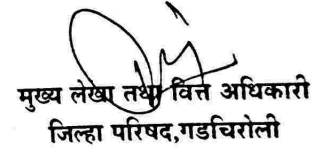 मुख्य लेखा तथा वित्त अधिकारी
जिल्हा परिषद,गडचिरोली